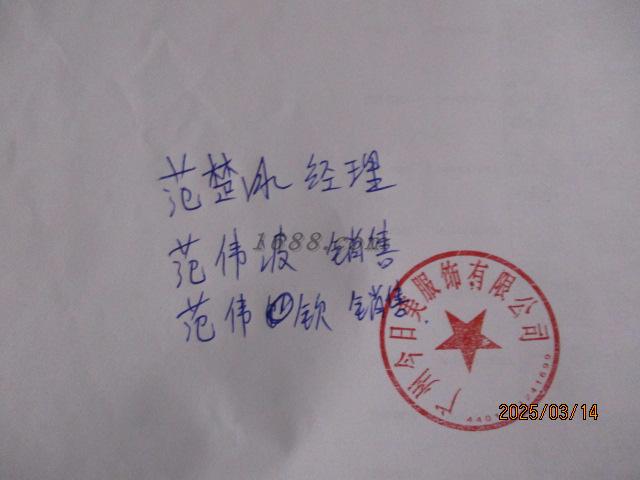 范楚冰 经理
范伟波 销售
范伟钦 销售
1688.com
广州今日美服饰有限公司
2025/03/14